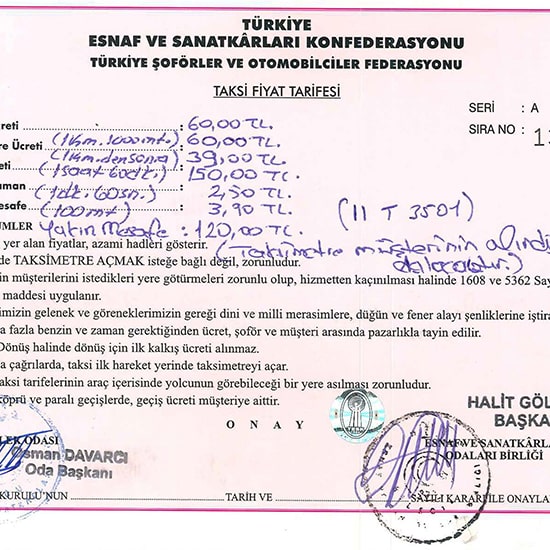 TÜRKİYE
ESNAF VE SANATKÂRLARI KONFEDERASYONU
TÜRKİYE ŞOFÖRLER VE OTOMOBİLCİLER FEDERASYONU
TAKSİ FİYAT TARİFESİ
SERİ : A
SIRA NO : 1
reti : 60,00 TL.
re Ücreti (1Km. 1000mt.) : 60,00 TL.
eti (1Km.den sonra) : 39,00 TL.
(1saat 60dk.) : 150,00 TL.
aman (1dk. 60sn.) : 2,50 TL.
esafe (100mt) : 3,90 TL.
ÜMLER Yakın Mesafe : 120,00 TL. (11 T 3501)
yer alan fiyatlar, azami hadleri gösterir. (Taksimetre müşterinin alındı
de TAKSİMETRE AÇMAK isteğe bağlı değil, zorunludur.
in müşterilerini istedikleri yere götürmeleri zorunlu olup, hizmetten kaçınılması halinde 1608 ve 5362 Say
maddesi uygulanır.
imizin gelenek ve göreneklerimizin gereği dini ve milli merasimlere, düğün ve fener alayı şenliklerine iştira
a fazla benzin ve zaman gerektiğinden ücret, şoför ve müşteri arasında pazarlıkla tayin edilir.
Dönüş halinde dönüş için ilk kalkış ücreti alınmaz.
a çağrılarda, taksi ilk hareket yerinde taksimetreyi açar.
aksi tarifelerinin araç içerisinde yolcunun görebileceği bir yere asılması zorunludur.
köprü ve paralı geçişlerde, geçiş ücreti müşteriye aittir.
HALİT GÖL
BAŞKA
O N A Y
LEK ODASI
Osman DAVARCI
Oda Başkanı
ESNAF VE SANATKÂRLA
ODALARI BİRLİĞİ
KURULU'NUN TARİH VE SAYILI KARARI İLE ONAYLAN